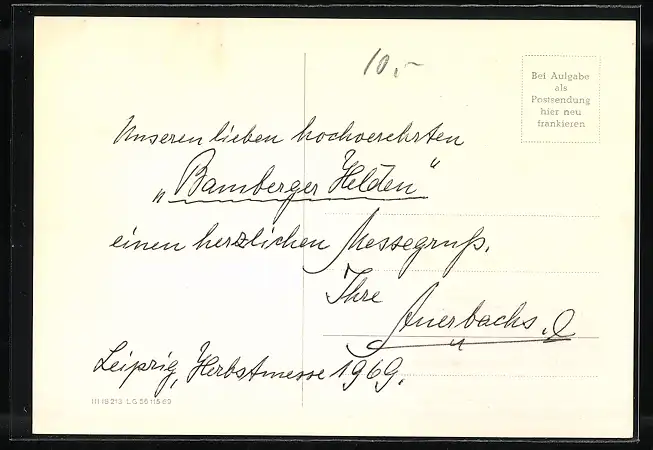 10,-
Bei Aufgabe
als
Postsendung
hier neu
frankieren
Unseren lieben hochverehrten
„Bamberger Helden“
einen herzlichen Messegruß.
Ihre
Auerbachs.
Leipzig, Herbstmesse 1969.
III 18 213 LG 56 115 69